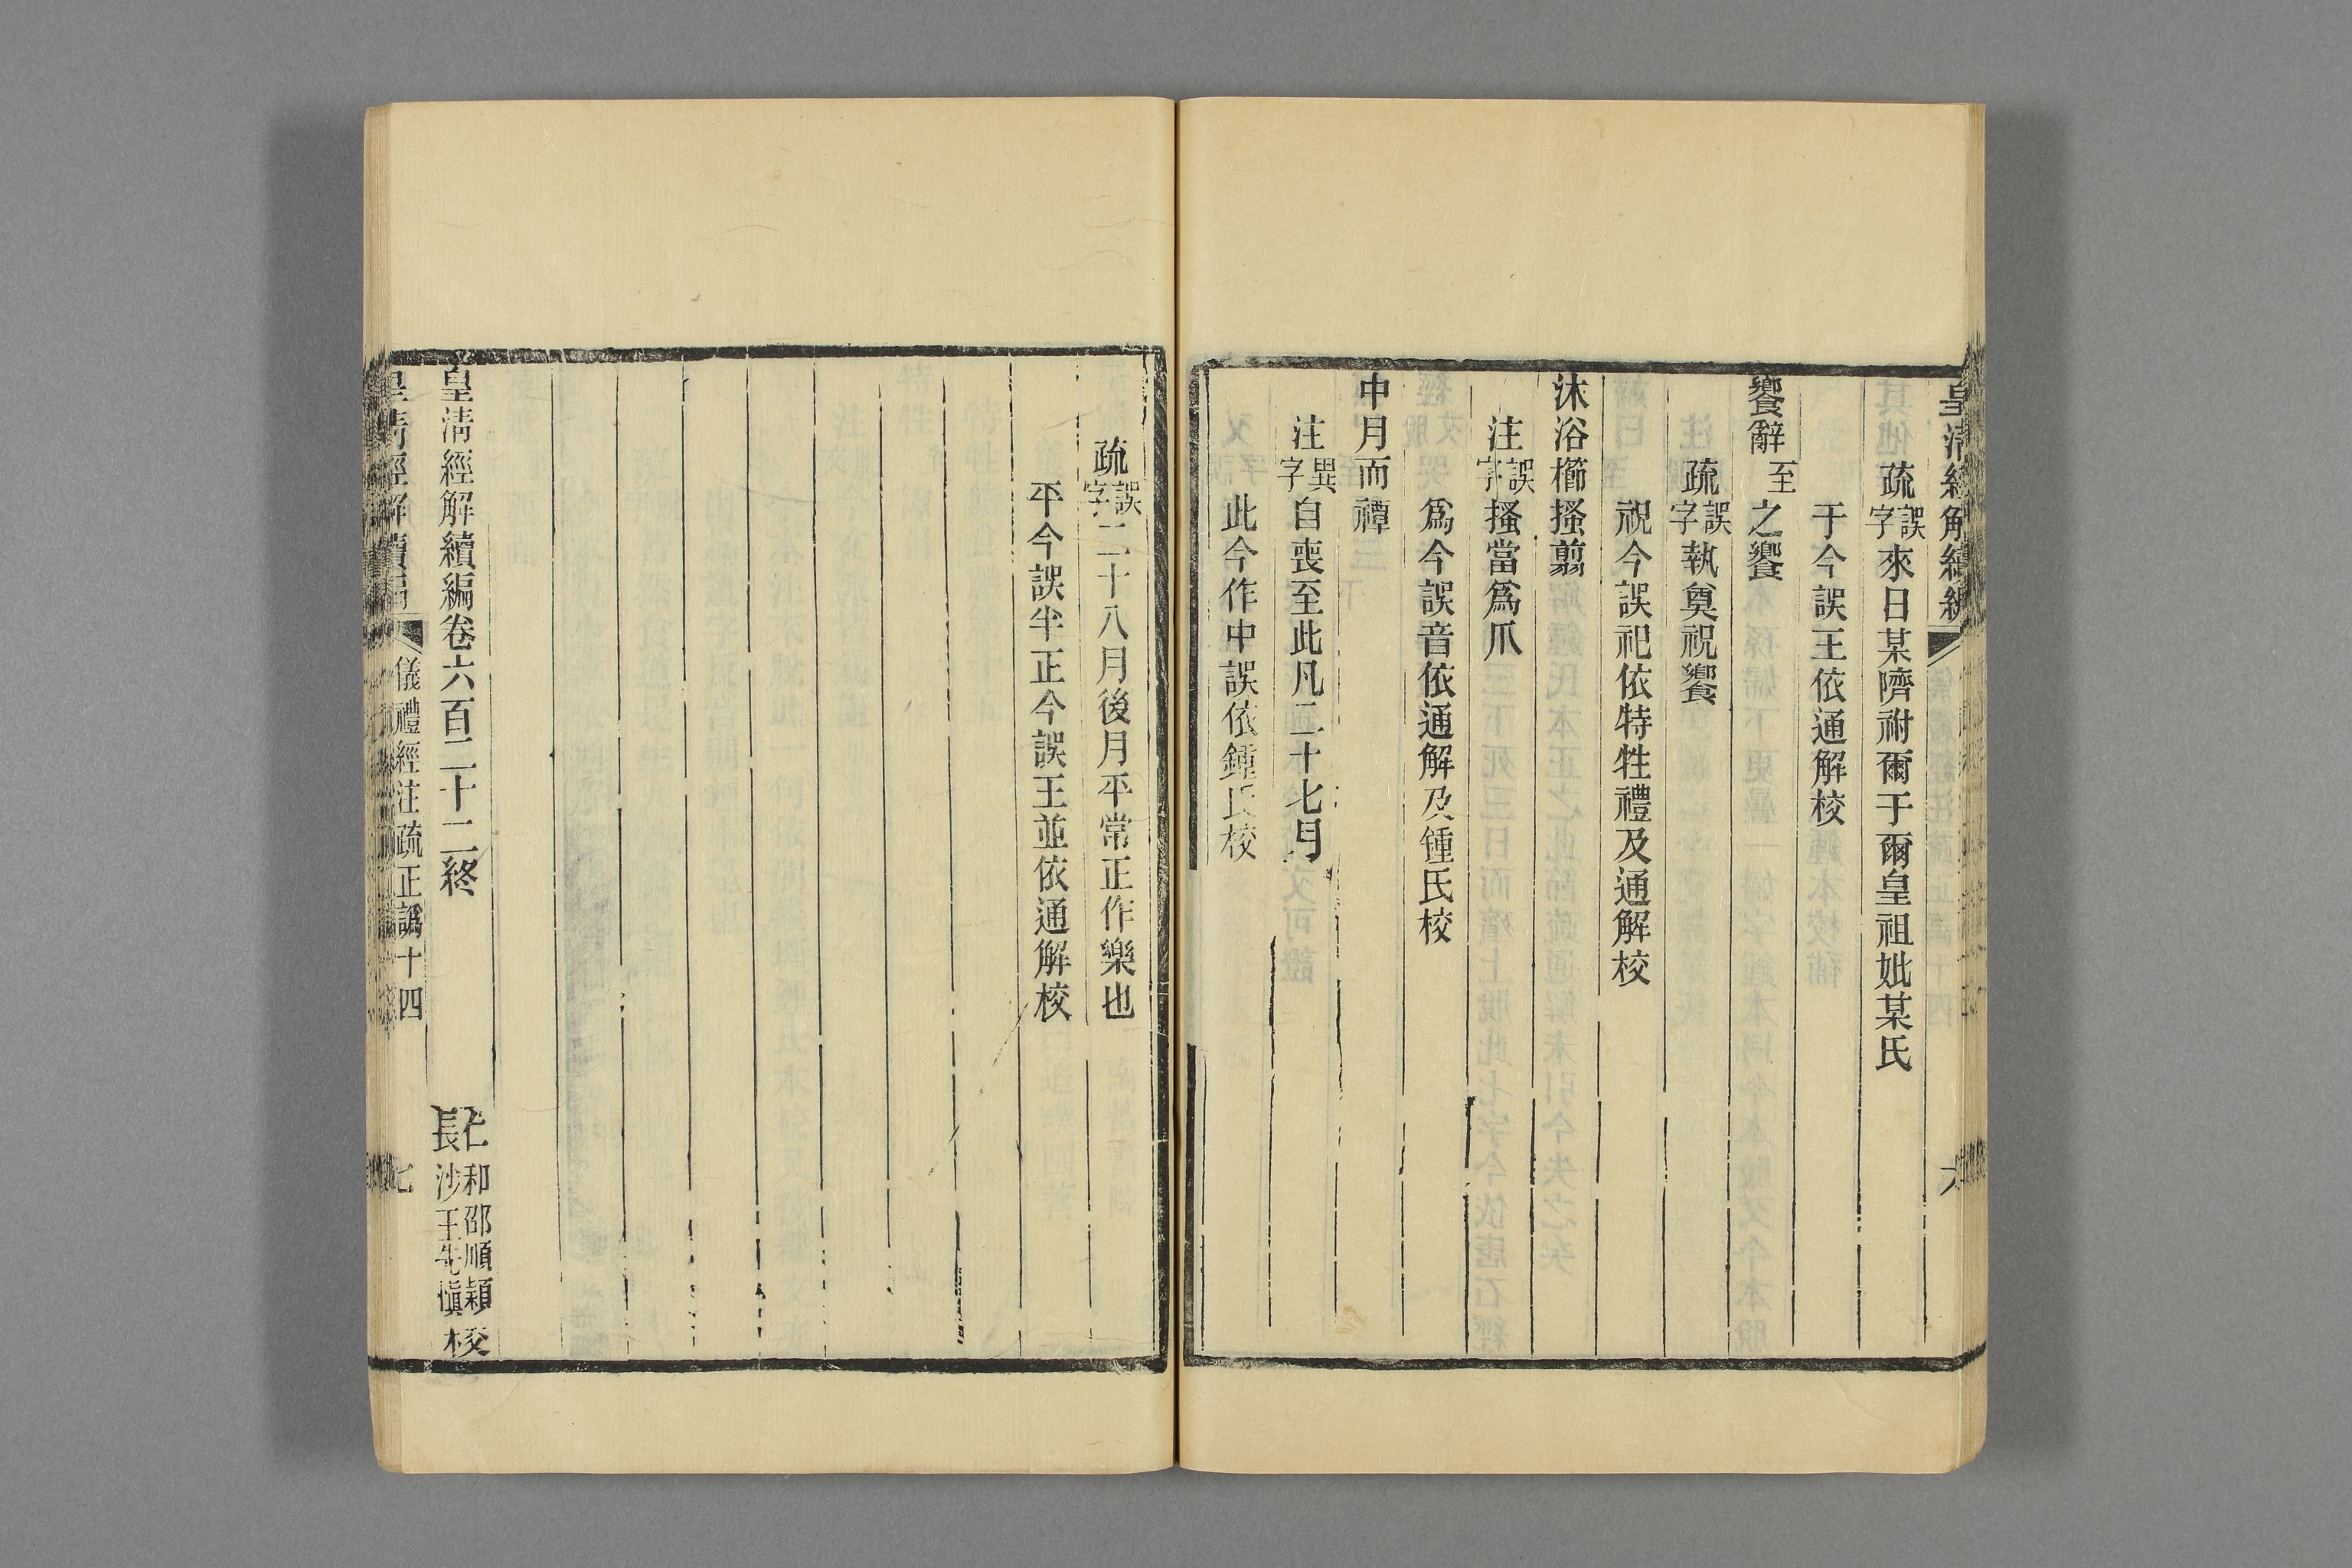 皇清經解續編
疏誤字來日某隮祔爾于爾皇祖妣某氏
于今誤王依通解校
饗辭至之饗
疏誤字執奠祝饗
祝今誤祀依特牲禮及通解校
沐浴櫛搔翦
注誤字搔當爲爪
爲今誤音依通解及鍾氏校
中月而禫
注異字自喪至此凡二十七月
此今作中誤依鍾氏校
疏誤字二十八月後月平常正作樂也
平今誤半正今誤王並依通解校
皇清經解續編卷六百二十二終
仁和邵順穎
長沙王先慎校
皇清經解續編 儀禮經注疏正譌十四 七